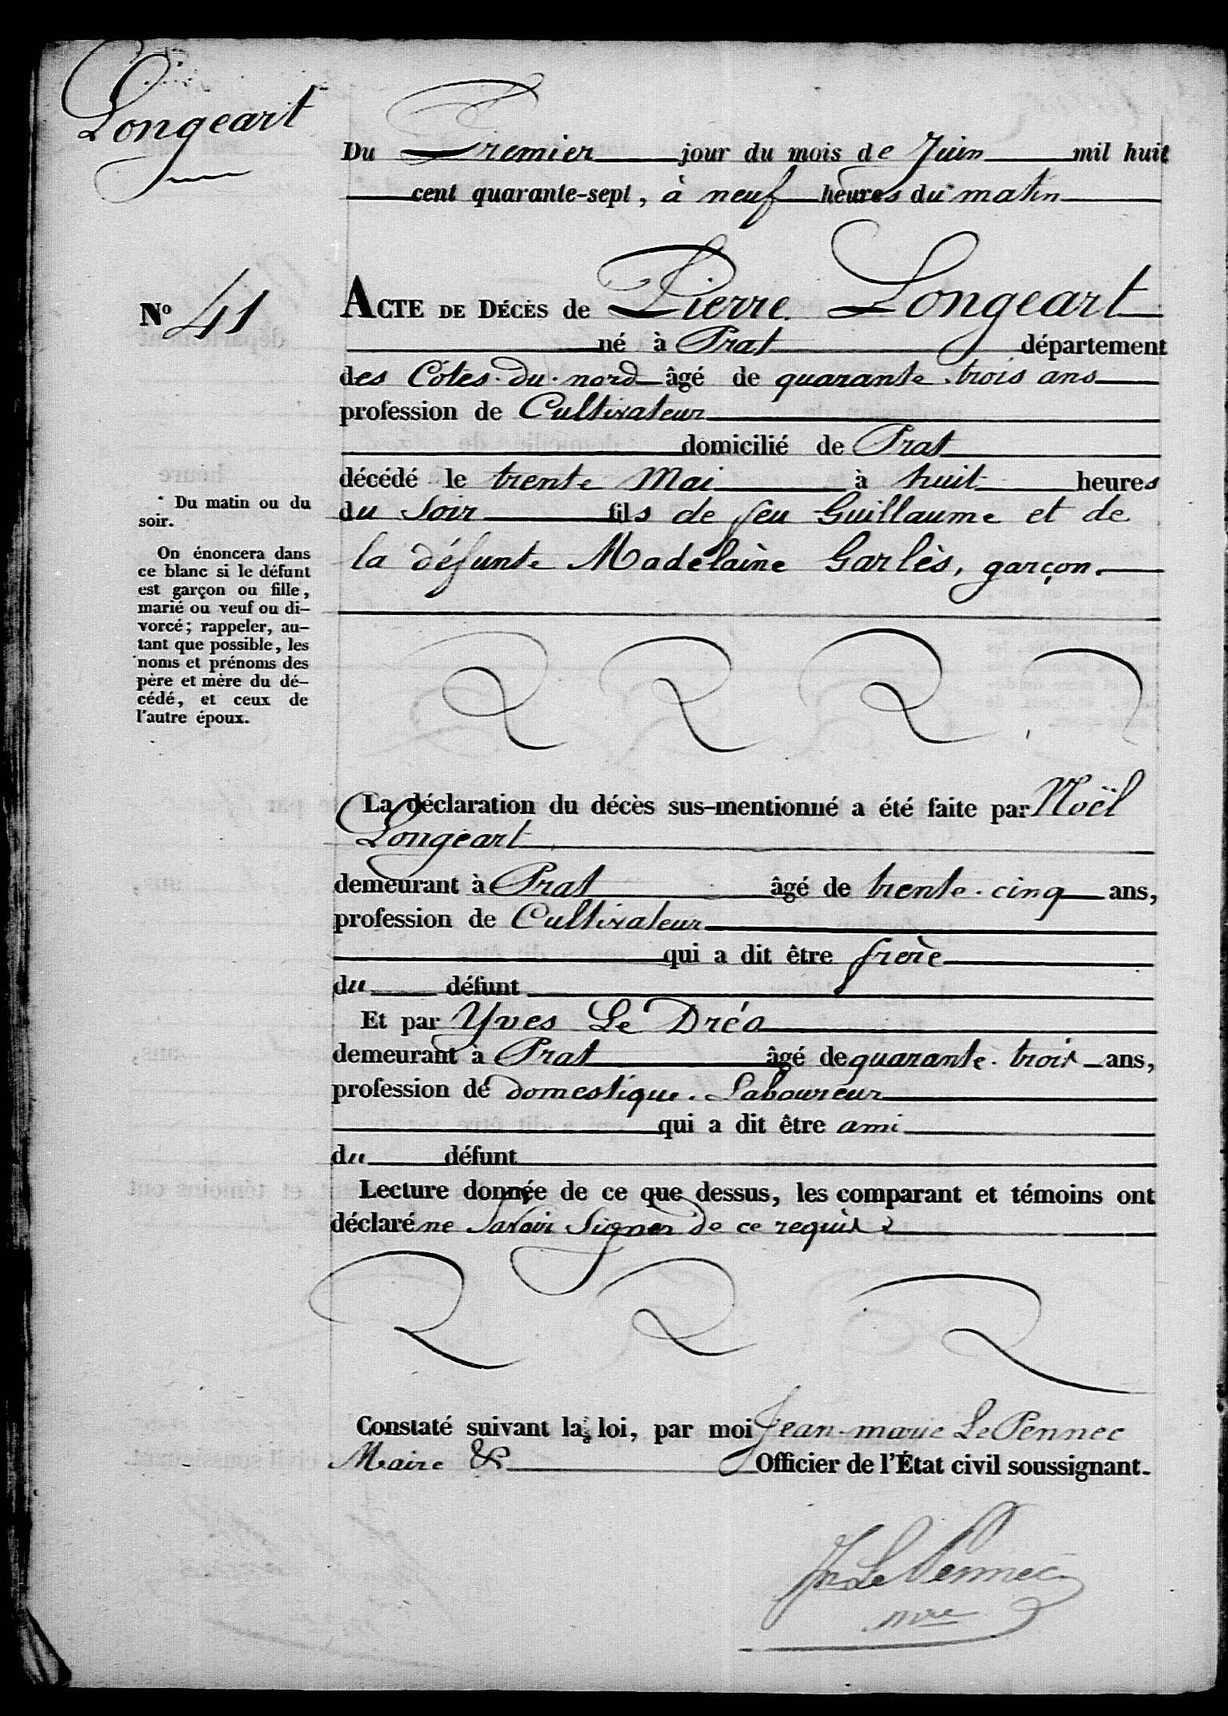 Longeart
Du Premier jour du mois de Juin mil huit
cent quarante-sept, à neuf heures du* matin
No 41
ACTE DE DÉCÈS de Pierre Longeart
né à Prat département
des Côtes-du-nord âgé de quarante-trois ans
profession de Cultivateur
domicilié de Prat
décédé le trente Mai à huit heures
du Soir fils de feu Guillaume et de
la défunte Madelaine Garlès, garçon.
* Du matin ou du
soir.
On énoncera dans
ce blanc si le défunt
est garçon ou fille,
marié ou veuf ou di-
vorcé; rappeler, au-
tant que possible, les
noms et prénoms des
père et mère du dé-
cédé, et ceux de
l'autre époux.
La déclaration du décès sus-mentionné a été faite par Noël
Longeart
demeurant à Prat âgé de trente-cinq ans,
profession de Cultivateur
qui a dit être frère
du défunt
Et par Yves Le Dréo
demeurant à Prat âgé de quarante-trois ans,
profession de domestique-Laboureur
qui a dit être ami
du défunt
Lecture donnée de ce que dessus, les comparant et témoins ont
déclaré ne Savoir Signer de ce requis
Constaté suivant la loi, par moi Jean-marie Le Pennec
Maire & Officier de l'État civil soussignant.
Jn Le Pennec
mre